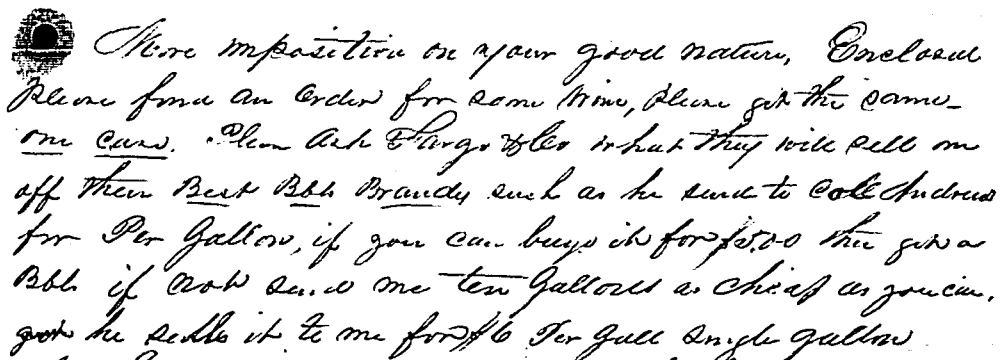 More imposition on your good nature, Enclosed
please find an order for some Wine, please get the same
one case. Please Ask Fargo & Co what they will sell me
off their Best Bbls Brandy such as he send to Coll Andrews
for Per Gallon, if you can buy it for $5.00 then get a
Bbls if not send me ten Gallons as cheap as you can,
he sells it to me for $6 Per Gall single gallon